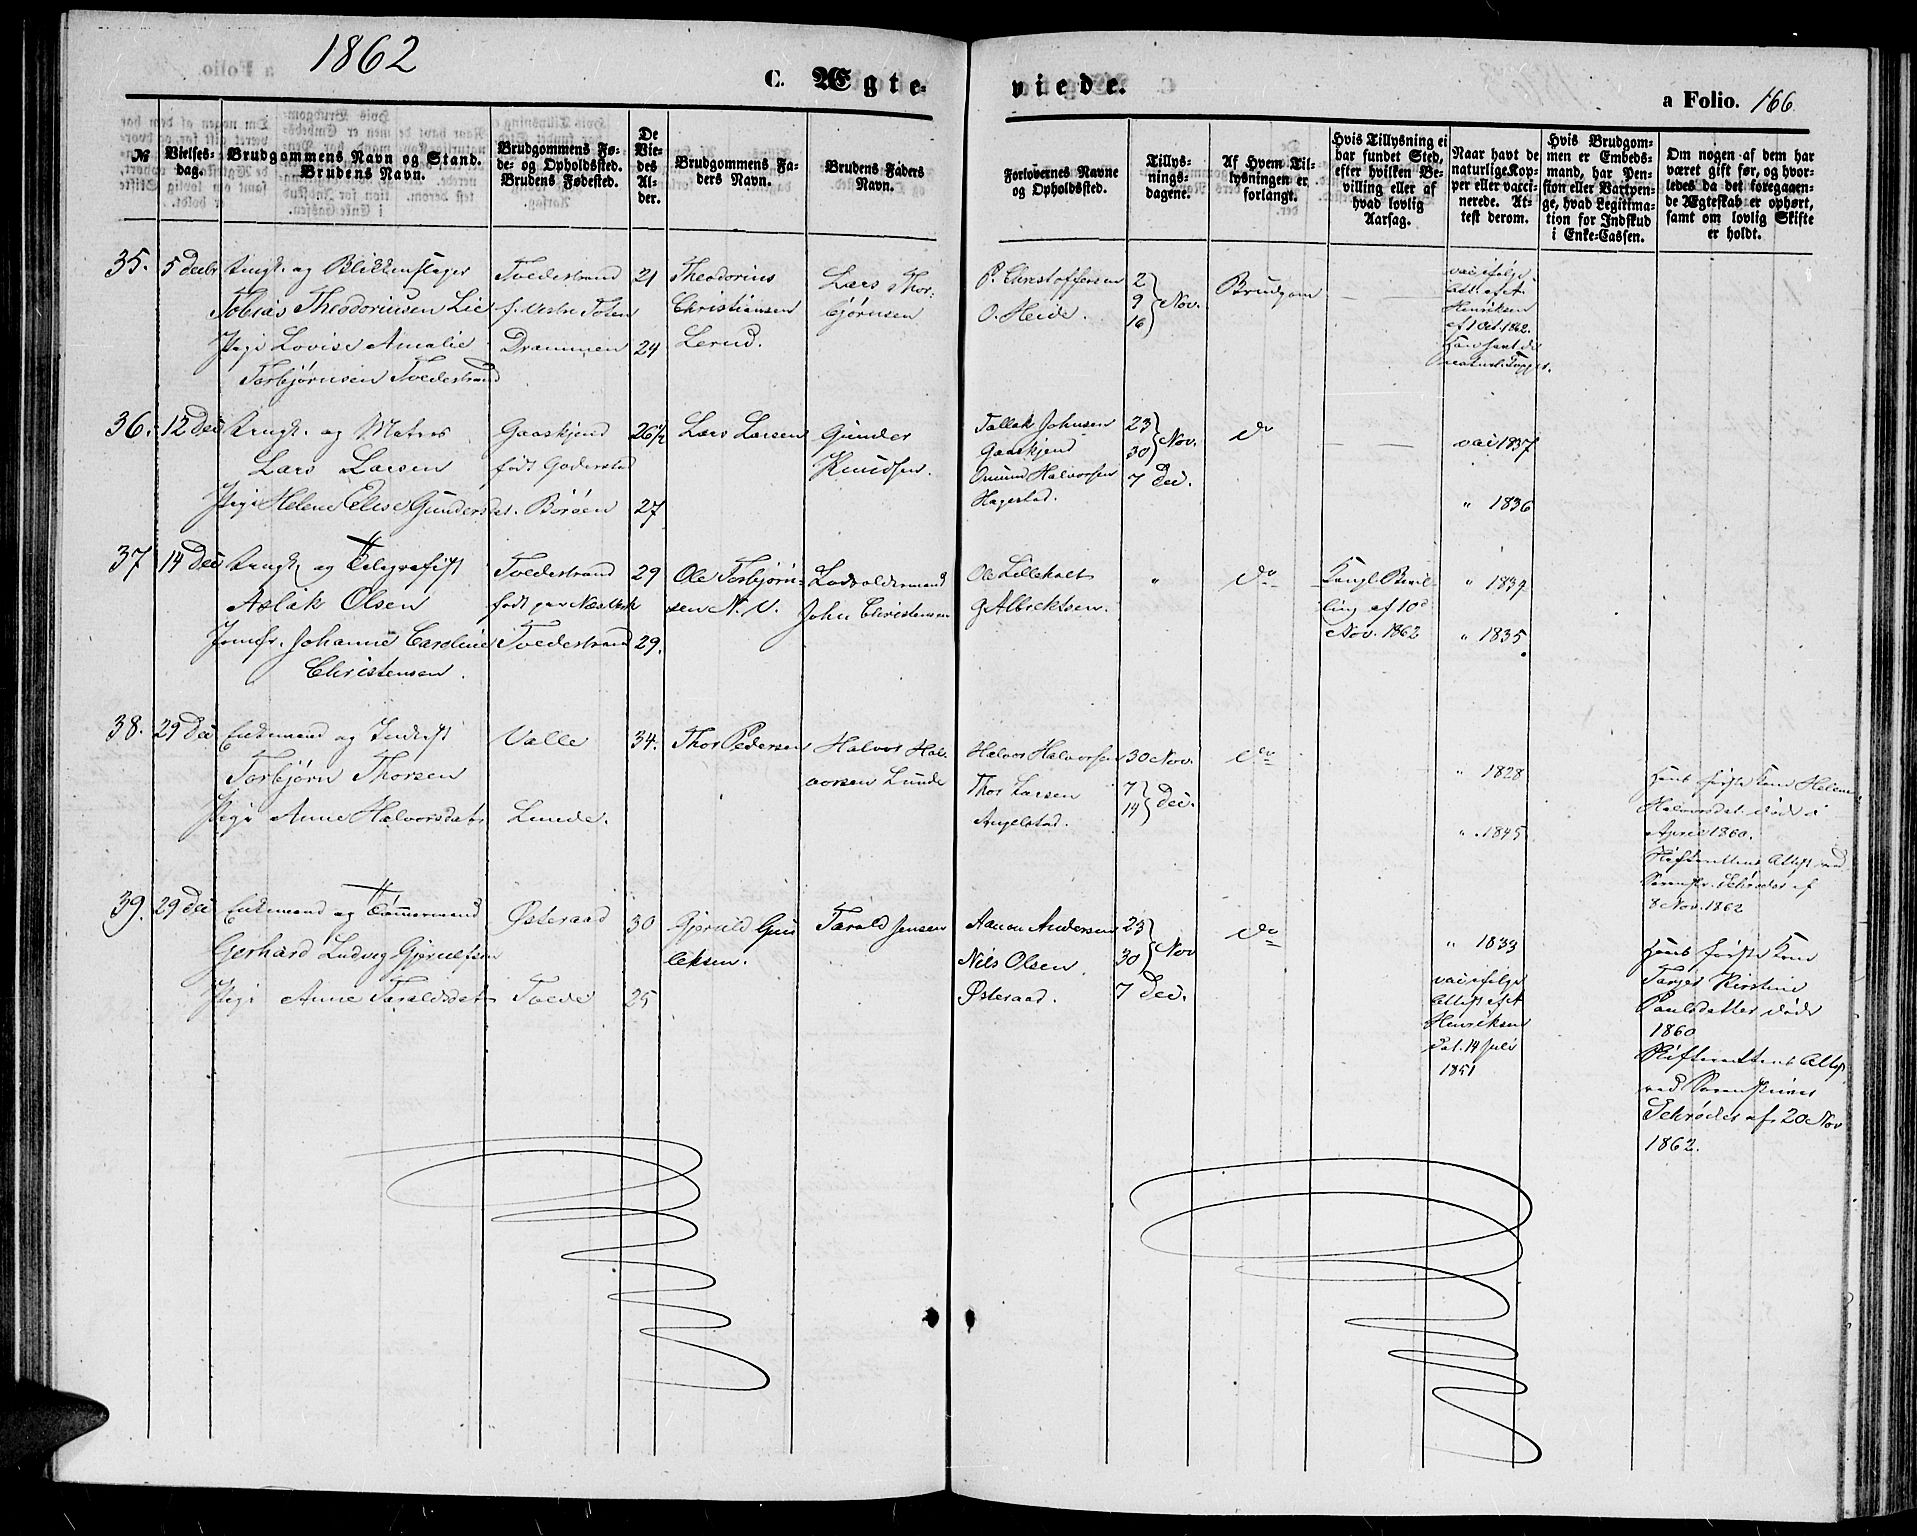 1862
C. Ægte-
viede.
a Folio. 166
№
Vielses-
dag.
Brudgommens Navn og Stand.
Brudens Navn.
Brudgommens Fø-
de- og Opholdssted.
Brudens Fødested.
De
Vie-
des
Al-
der.
Brudgommens Fa-
ders Navn.
Brudens Faders
Navn.
Forlovernes Navne
og Opholdssted.
Tillys-
nings-
dagene.
Af Hvem Til-
lysningen er
forlangt.
Hvis Tillysning ei
har fundet Sted,
efter hvilken Be-
villing eller af
hvad lovlig
Aarsag.
Naar havt de
naturlige Kop-
per eller vacci-
nerede. At-
test derom.
Hvis Brudgom-
men er Embeds-
mand, har Pen-
sion eller Vartpen-
ge, hvad Legitima-
tion for Indskud
i Enke-Cassen.
Om nogen af dem har
været gift før, og hvor-
ledes da det foregaaen-
de Ægteskab er ophørt,
samt om lovlig Skifte
er holdt.
35. 5 Decbr Ungk. og Blikkenslager Tvedestrand 21 Theodorius Lars Thor-
Tobias Theodoriusen Lie f. Vestre Toten Christiansen bjørnsen
Pige Lovise Amalie Drammen 24 Lerud.
Torbjørnsen Tvedestrand
P. Christoffersen 2 Brudgom
O. Heide. 9 Nov.
16
vac ifølge
Att. af A.
Henriksen
af 1 Oct. 1862.
36. 12 Dec Ungk. og Matros Gaaskjend 26½ Lars Larsen Gunder
Lars Larsen født Gjderstad Knudsen.
Pige Helene Elise Gundersdat. Borøen 27
Tallak Johnsen 23 do vac 1837
Gaaskjend 30 Nov.
Omund Halvorsen 7 Dec.
Hagestad. " 1836
37 14 Dec Ungk og Telegrafist Tvedestrand 29 Ole Torbjørn- Lodsoldermand
Aslak Olsen født paa Næs Verk sen N. V. John Christensen
Jomfr. Johanne Caroline Tvedestrand 29.
Christensen.
Ole Lilleholt " do Kongl. Bevil- " 1837
G Albrektsen. ling af 10d
Nov. 1862 " 1835
38. 29 Dec Enkemand og Inderst Valle 34. Thor Pedersen Halvor Hal-
Torbjørn Thorsen vorsen Lunde
Pige Anne Halvorsdat. Lunde.
Halvor Halvorsen 30 Nov. do " 1828
Thor Larsen 7
Angelstad. 14 Dec. " 1845
Hans første Kone Helene
Halvorsdat. døde i
April 1860.
Skifterettens Attest ved
Sorenskr. Schrøder af
8 Nov. 1862
39. 29 Dec Enkemand og Tømmermand Østeraad 30 Gjeruld Gun Tarald Jensen
Gerhard Ludvig Gjerulfsen leksen.
Pige Anne Taraldsdat. Tvede 25
Aanon Andersen 23 do " 1833
Nils Olsen 30 Nov
Østeraad. 7 Dec.
vac ifølge
Attest af A
Henriksen
dat. 14 Juli
1851
Hans første Kone
Tarjer Kirstine
Paulsdatter døde
1860
Skifterettens Attest
ved Sorenskriver
Schrøder af 20 Nov
1862.